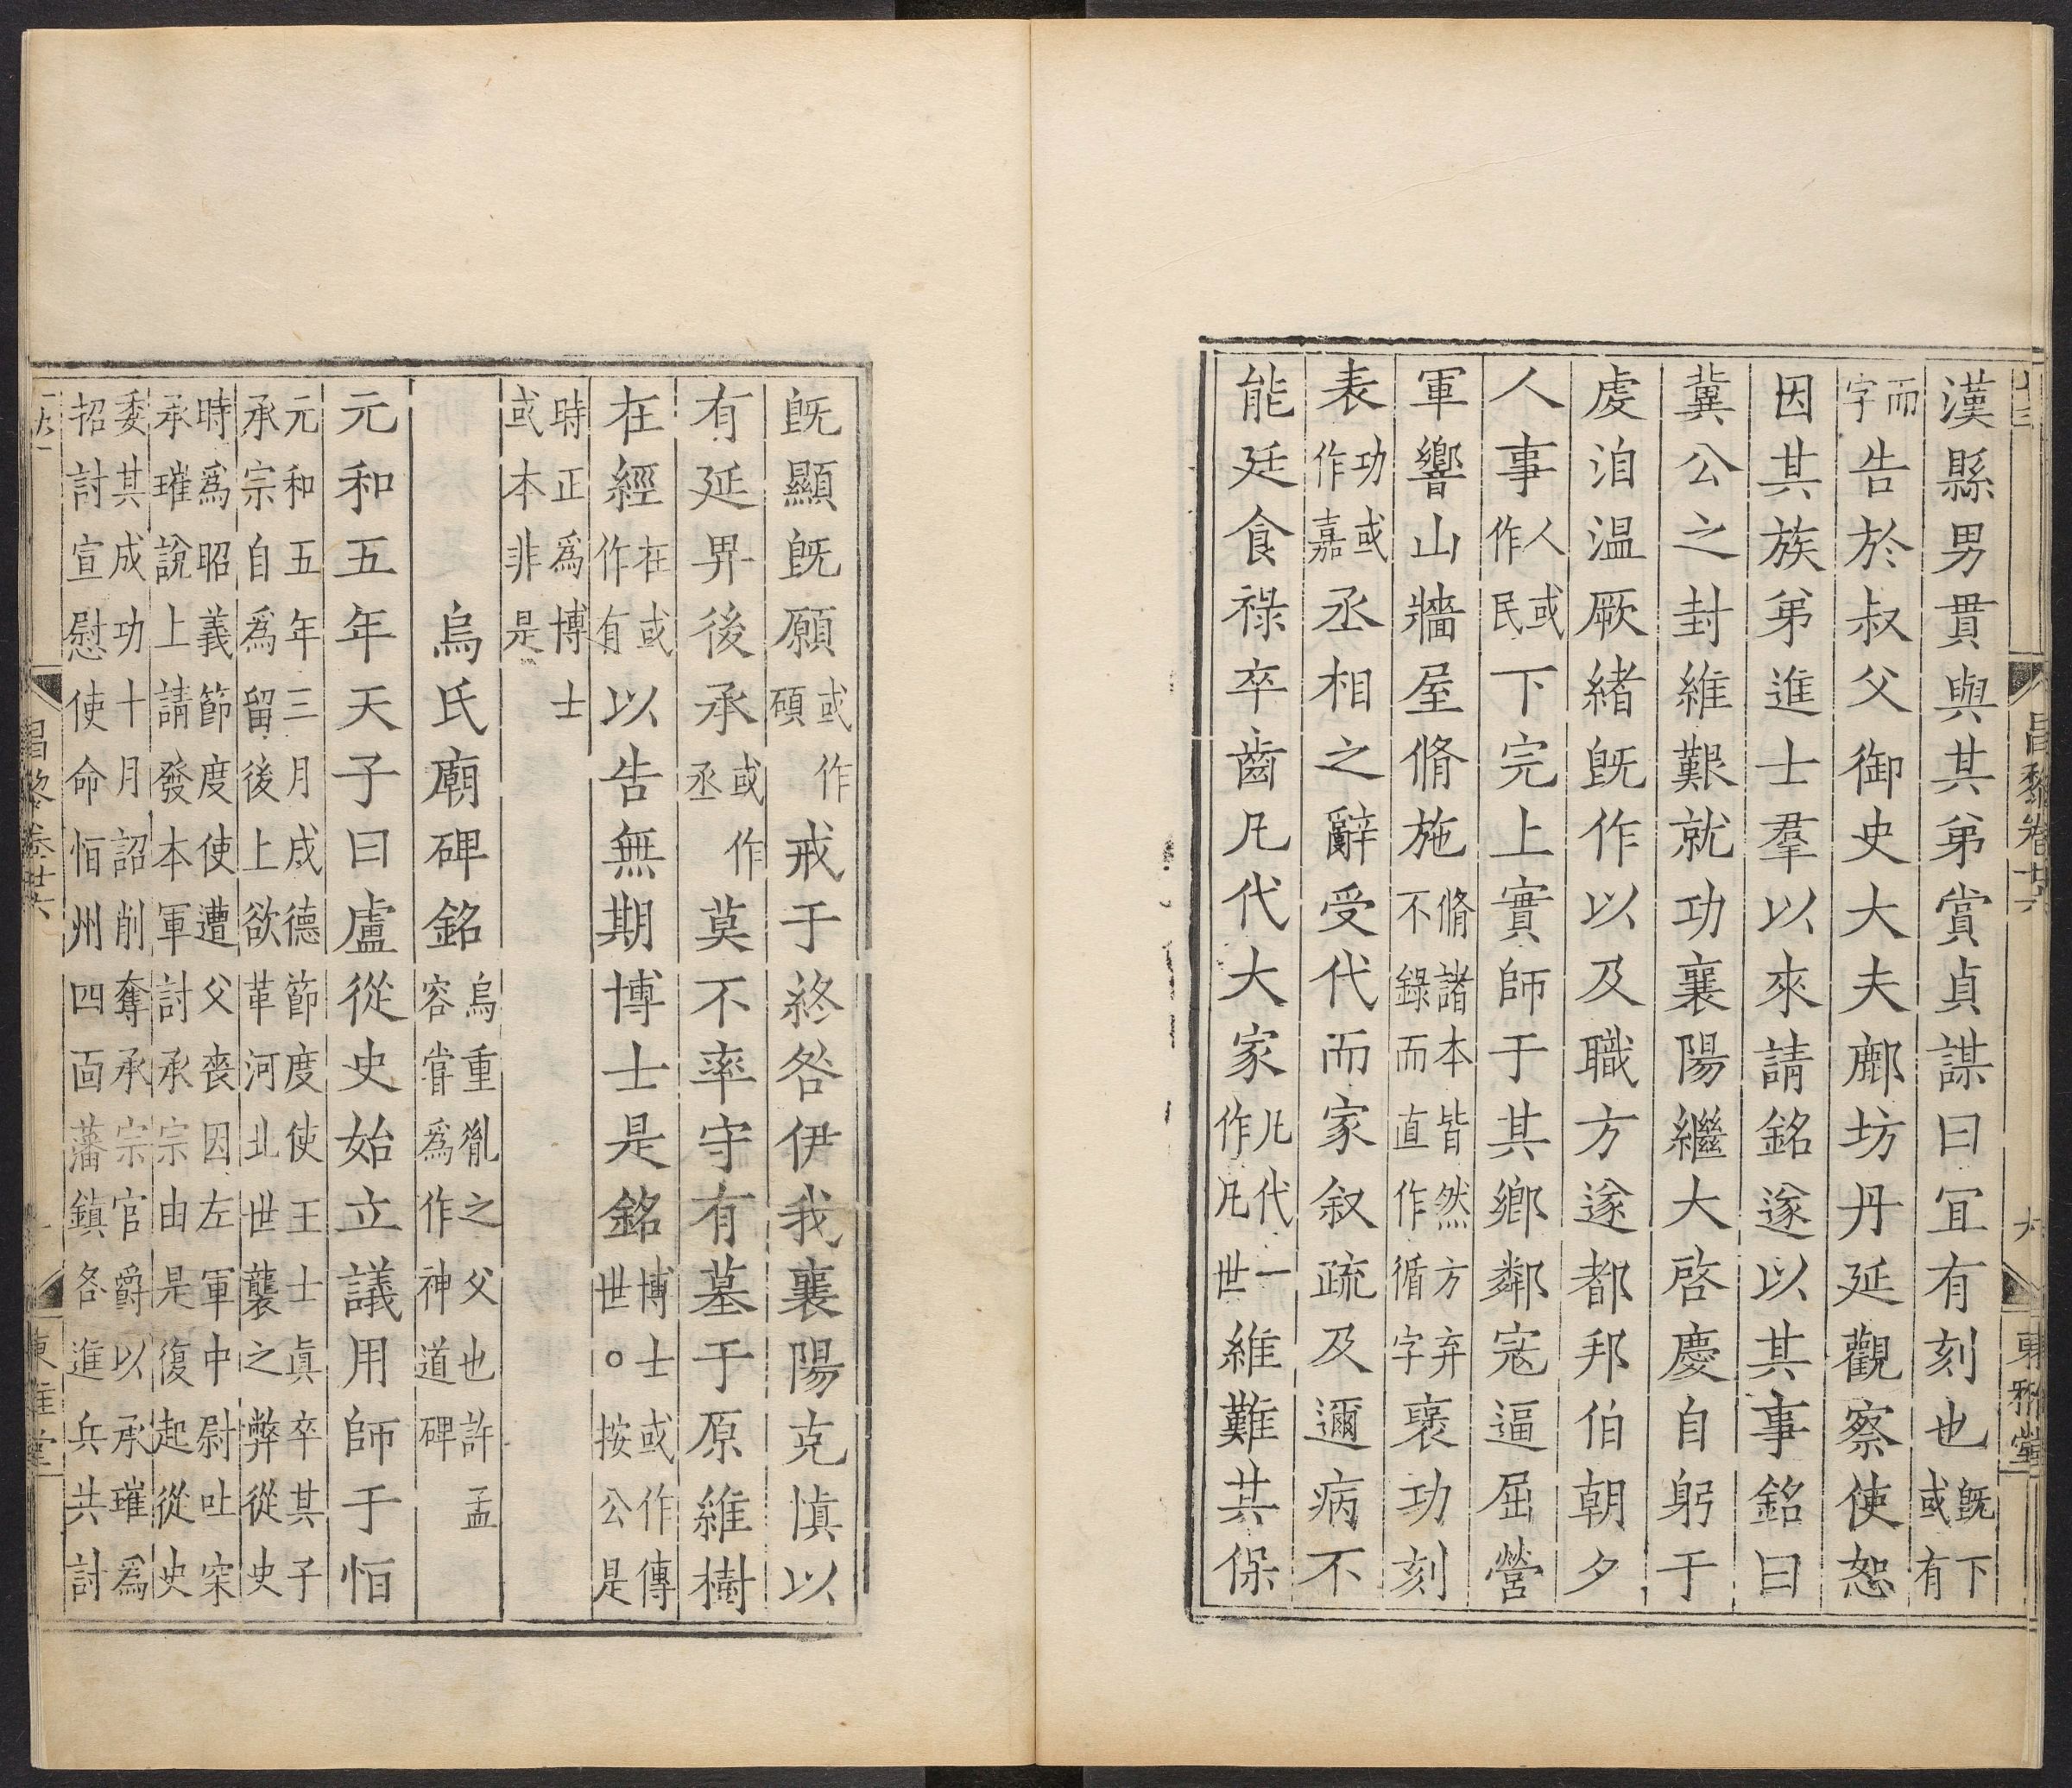 漢縣男貫與其弟賞貞謀曰宜有刻也旣下或有
而字告於叔父御史大夫鄜坊丹延觀察使恕
因其族弟進士羣以來請銘遂以其事銘曰
冀公之封維艱就功襄陽繼大啓慶自躬于
虔洎温厥緒旣作以及職方遂都邦伯朝夕
人事人或作民下完上實師于其鄉鄰寇逼屈營
軍響山牆屋脩施脩諸本皆然方弃不錄而直作循字裒功刻
表功或作嘉丞相之辭受代而家叙疏及邇病不
能廷食祿卒齒凡代大家凡代一作凡世維難其保
昌黎卷廿六
東雅堂
旣顯旣願或作碩戒于終咎伊我襄陽克愼以
有延畀後承或作丞莫不率守有墓于原維樹
在經在或作有以告無期博士是銘博士或作傳世○按公是
時正爲博士或本非是
烏氏廟碑銘烏重胤之父也許孟容嘗爲作神道碑
元和五年天子曰盧從史始立議用師于恒
元和五年三月成德節度使王士眞卒其子承宗自爲留後上欲革河北世襲之弊從史
時爲昭義節度使遭父喪因左軍中尉吐突承璀說上請發本軍討承宗由是復起從史
委其成功十月詔削奪承宗官爵以承璀爲招討宣慰使命恒州四面藩鎮各進兵共討
昌黎卷廿六
東雅堂